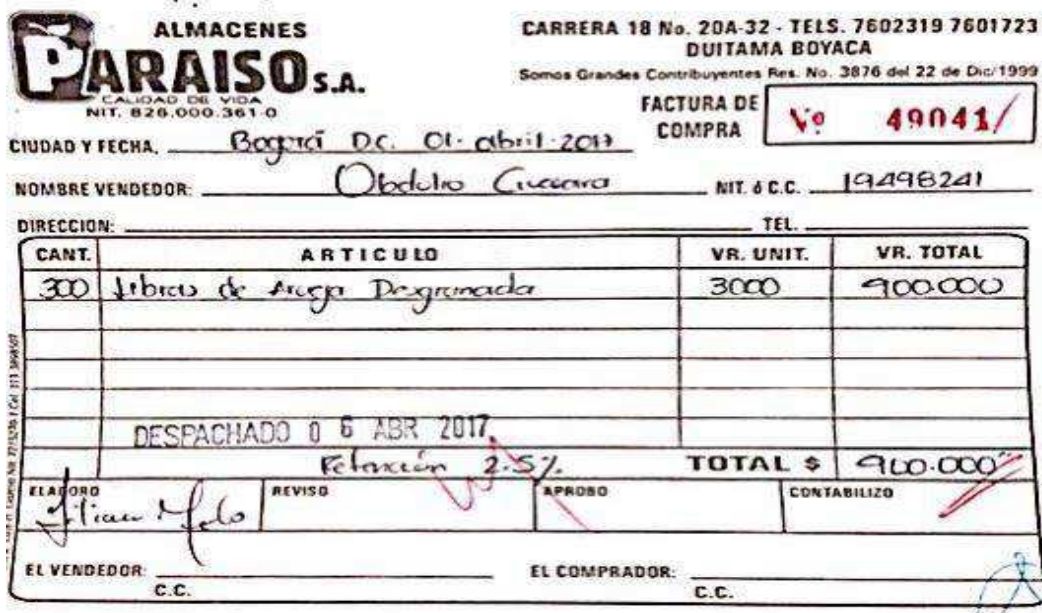 ALMACENES
PARAISO S.A.
CALIDAD DE VIDA
NIT. 826.000.361-0
CARRERA 18 No. 20A-32 - TELS. 7602319 7601723
DUITAMA BOYACA
Somos Grandes Contribuyentes Res. No. 3876 del 22 de Dic/1999
FACTURA DE COMPRA Nº 49041/
CIUDAD Y FECHA. Bogotá D.C. 01-abril-2017
NOMBRE VENDEDOR: Obdulio Guevara NIT. ó C.C. 19498241
DIRECCION: TEL.
CANT. ARTICULO VR. UNIT. VR. TOTAL
300 Libras de Desgranada 3000 900.000
DESPACHADO 06 ABR 2017
Retención 2.5% TOTAL $ 900.000
ELABORO REVISO APROBO CONTABILIZO
Lilian Melo
EL VENDEDOR: EL COMPRADOR:
C.C. C.C.